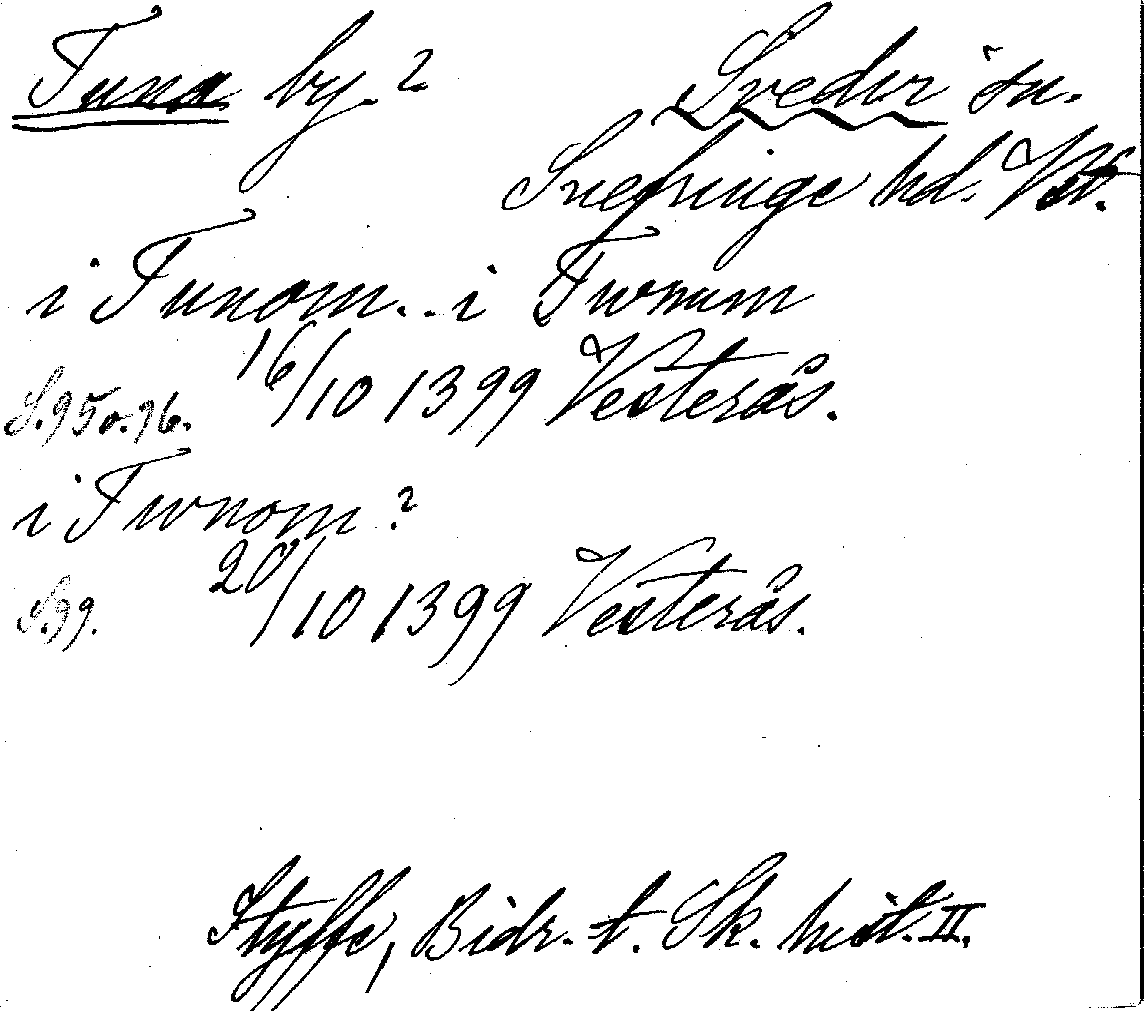 Tuna by? Svedvi sn.
Snefringe hd. Vstm.
i Tunom... i Twnum
S. 95 o. 96. 16/10 1399 Vesterås.
i Twnom?
S. 99. 20/10 1399 Vesterås.
Styffe, Bidr. t. Sk. hist. II.